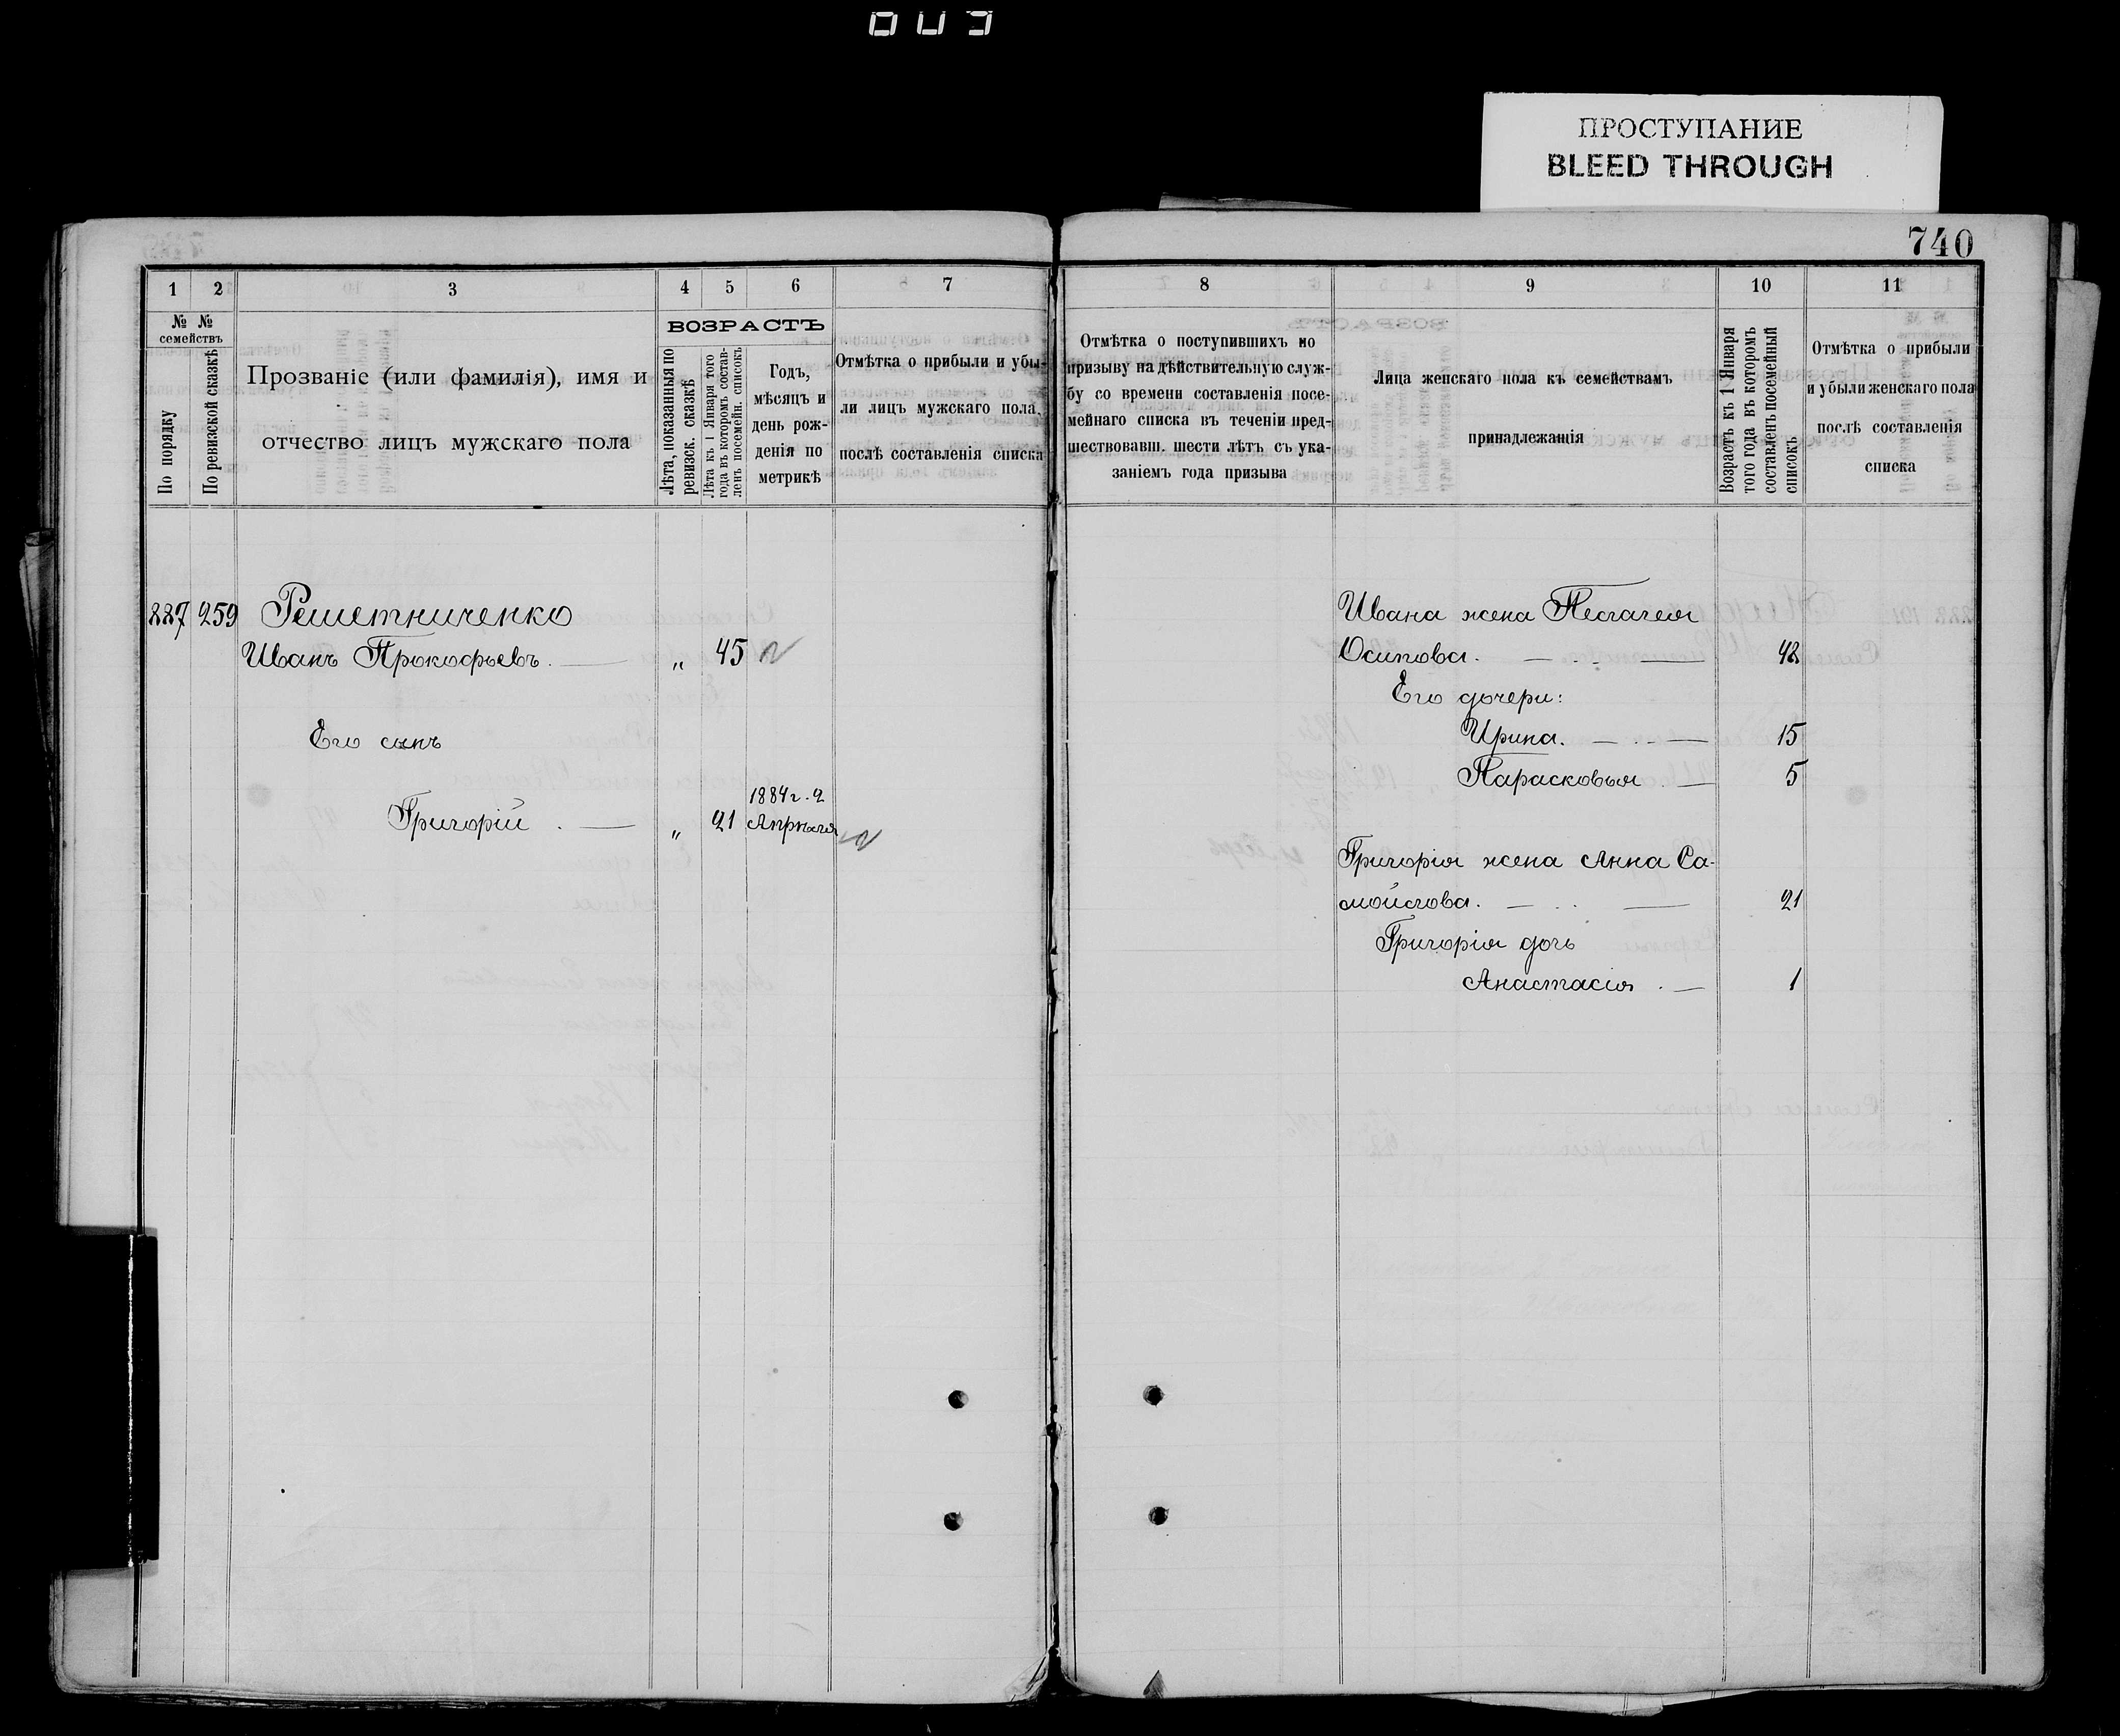 ПРОСТУПАНИЕ
BLEED THROUGH
740
1 2 3 4 5 6 7
№ № семействъ
По порядку
По ревизской сказкѣ
Прозваніе (или фамилія), имя и
отчество лицъ мужскаго пола
ВОЗРАСТЪ
Лѣта, показанныя по
ревизск. сказкѣ
Лѣта къ 1 Января того
года въ которомъ состав-
ленъ посемейн. списокъ
Годъ,
мѣсяцъ и
день рож-
денія по
метрикѣ
Отмѣтка о прибыли и убы-
ли лицъ мужскаго пола,
послѣ составленія списка
887 259 Решетниченко
Иванъ Прокофьевъ. — „ 45
Его сынъ
1884 г. 2
Григорій . — „ 21 Апрѣля
8 9 10 11
Отмѣтка о поступившихъ по
призыву на дѣйствительную служ-
бу со времени составленія посе-
мейнаго списка въ теченіи пред-
шествовавш. шести лѣтъ съ ука-
заніемъ года призыва
Лица женскаго пола къ семействамъ
принадлежащія
Возрастъ къ 1 Января
того года въ которомъ
составленъ посемейный
списокъ
Отмѣтка о прибыли
и убыли женскаго пола
послѣ составленія
списка
Ивана жена Пелагея
Осипова. — . . — 42
Его дочери:
Ирина. — . . — 15
Парасковья . — 5
Григорія жена Анна Са-
мойлова. — . . — 21
Григорія дочь
Анастасія . — 1